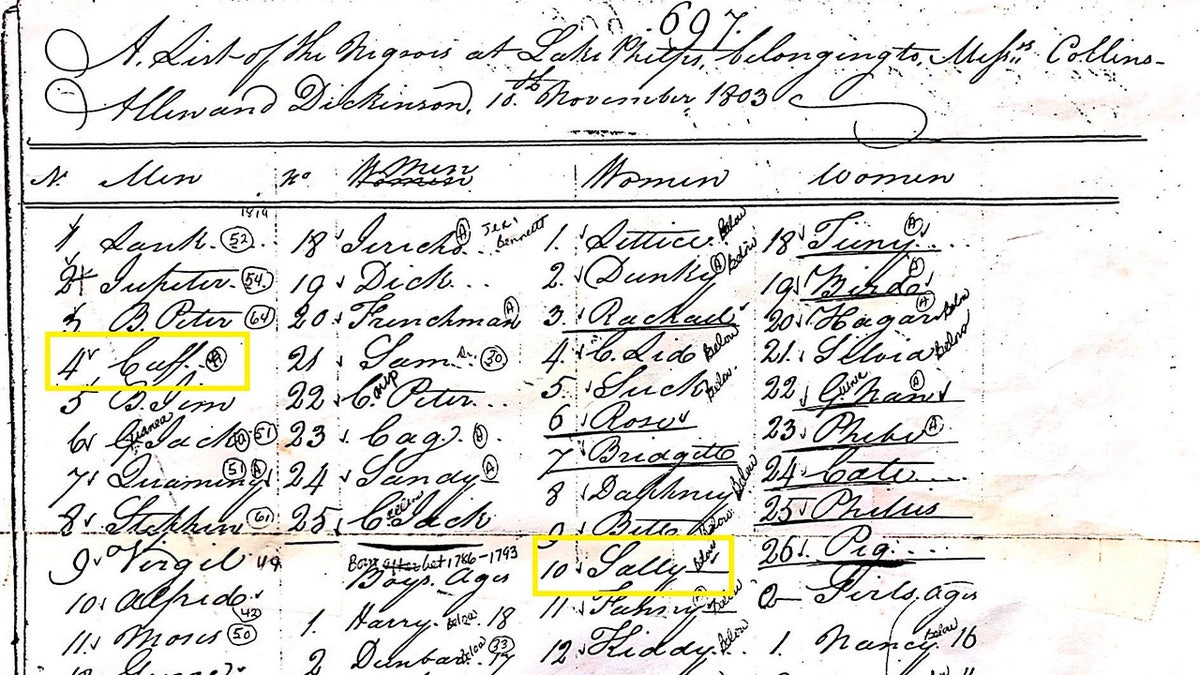 697.
A List of the Negroes at Lake Phelps, belonging to, Mess.rs Collins-
Allen and Dickinson, 10th November 1803
N. Men No Men Women Women
1819
1 Lank. (52) 18 Jericho (A) See Bennett 1. Lettice below 18 Tuny (A)
2 Jupiter. (54) 19 Dick 2. Dunky (A) below 19 Birde (A)
3 B. Peter (64) 20 Frenchman (A) 3. Rachael 20 Hagar (A) below
4 Cuff. (A) 21 Sam (30) 4 C. Lid below 21. Silvia below
5 B. Jim 22 C. Peter 5. Suck below 22 G. Nan (A)
6 Guinea Jack (A) (51) 23 Cag. (A) 6 Rose 23 Phebe (A)
7 Quaming (51) (A) 24 Sandy (A) 7 Bridgett 24 Cate
8 Stephen (61) 25 C. Jack 8 Daphney below 25 Philus
9 Virgil 49 bet 1786-1793 9 Bett below 26 Pig
10 Alfred Boys. Ages 10 Sally below Girls, ages
11 Moses (50) 1. Harry below 18 11 Fanny below 1. Nancy below 16
2 Dunbar below (33) 17 12 Kiddy below